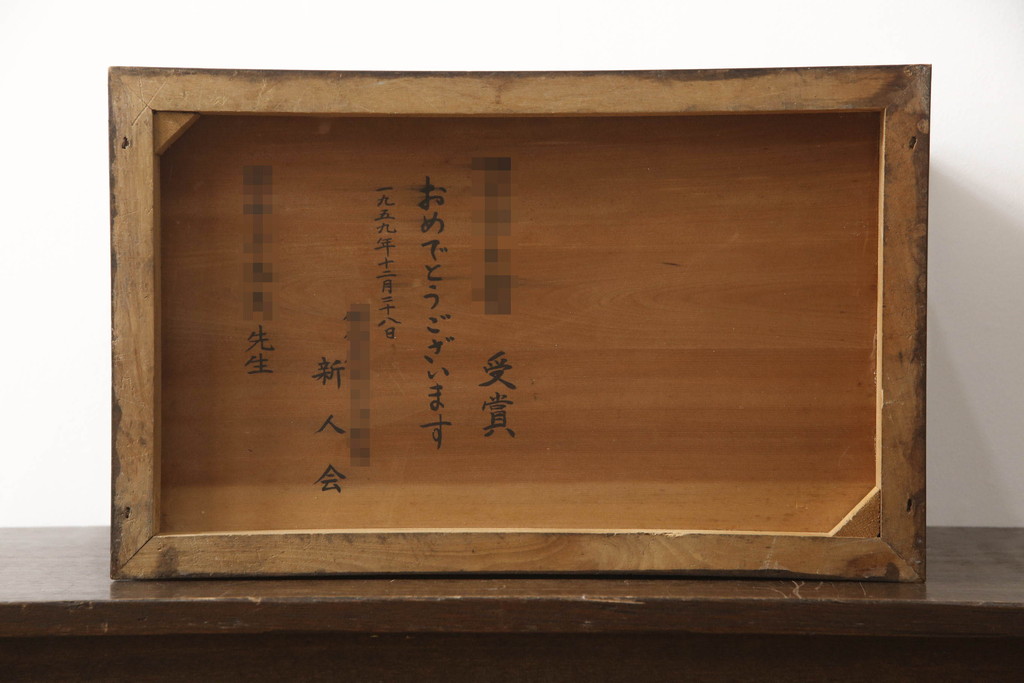 受賞
おめでとうございます
一九五九年十二月二十八日
新人会
先生